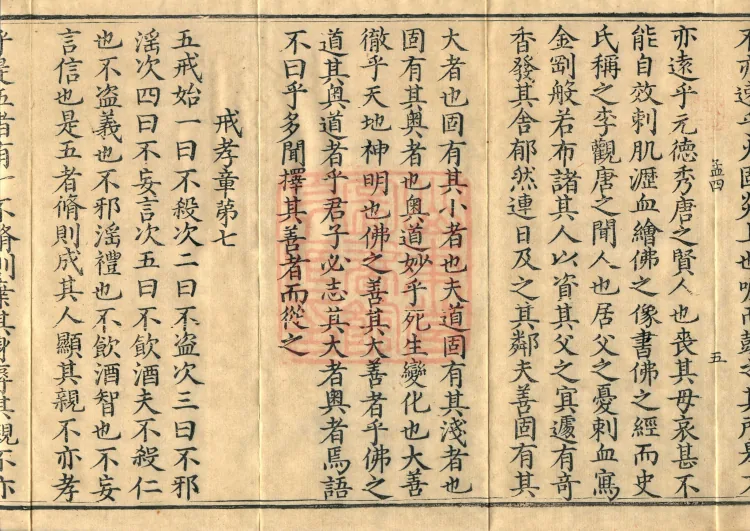 亦遠乎元德秀唐之賢人也喪其母哀甚不
能自效刺肌瀝血繪佛之像書佛之經而史
氏稱之李觀唐之聞人也居父之憂刺血寫
金剛般若布諸其人以資其父之冥遽有奇
香發其舍郁然連日及之其鄰夫善固有其
大者也固有其小者也夫道固有其淺者也
固有其奧者也奧道妙乎死生變化也大善
徹乎天地神明也佛之善其大善者乎佛之
道其奧道者乎君子必志其大者奧者焉語
不曰乎多聞擇其善者而從之
戒孝章第七
五戒始一曰不殺次二曰不盜次三曰不邪
淫次四曰不妄言次五曰不飲酒夫不殺仁
也不盜義也不邪淫禮也不飲酒智也不妄
言信也是五者脩則成其人顯其親不亦孝
乎是五者有一不脩則棄其身辱其親不亦
五